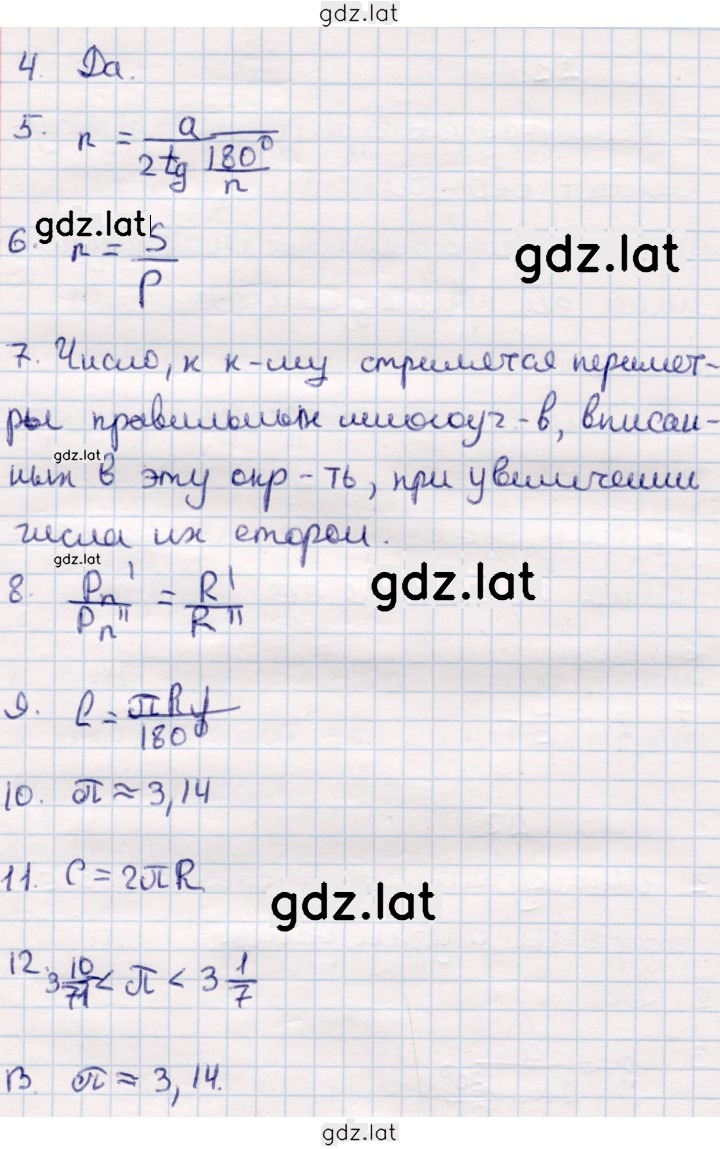 gdz.lat
4. Да.
5. n = a / (2 tg 180°/n)
gdz.lat
6. n = S / P
gdz.lat
7. Число, к к-му стримятся перимет-
ры правильных многоуг-в, вписан-
gdz.lat
ных в эту окр-ть, при увеличении
числа их сторон.
gdz.lat
8. Pn' / Pn" = R' / R"
gdz.lat
9. l = πRφ / 180°
10. π ≈ 3,14
11. C = 2πR
gdz.lat
12. 3 10/71 < π < 3 1/7
13. π ≈ 3,14.
gdz.lat